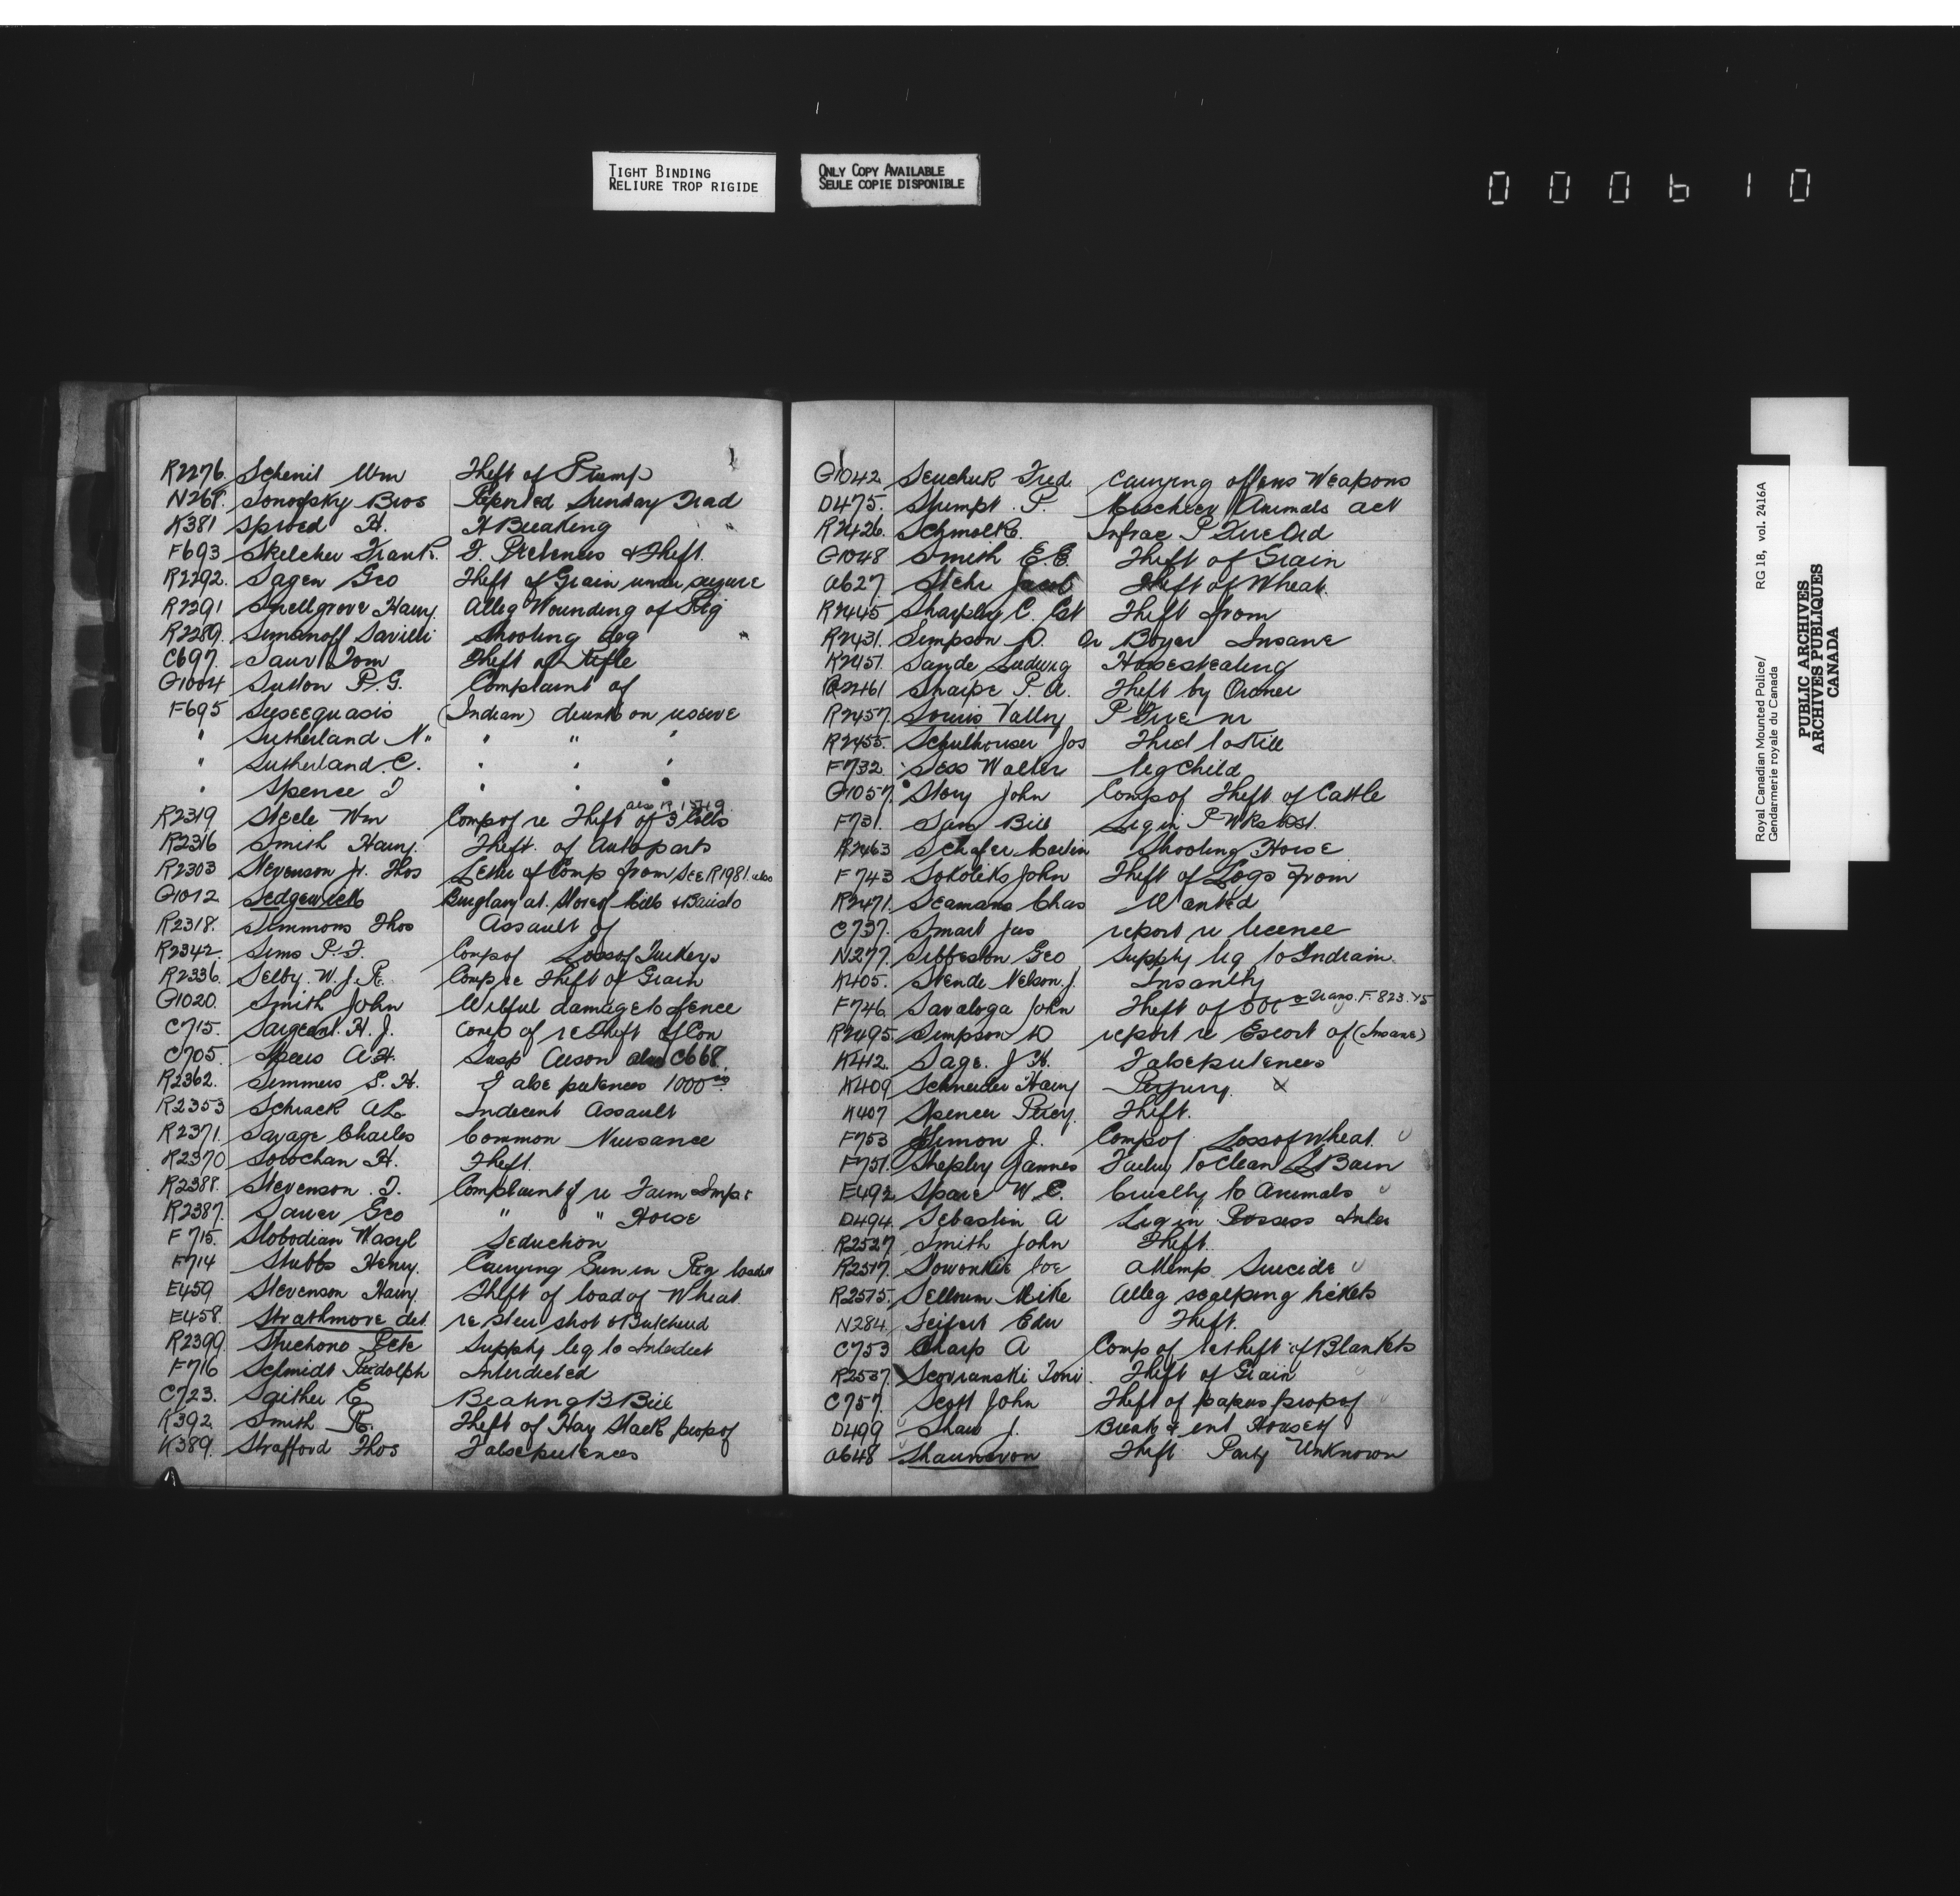 TIGHT BINDING
RELIURE TROP RIGIDE
ONLY COPY AVAILABLE
SEULE COPIE DISPONIBLE
000610
R2276. Schenil Wm Theft of Pump
N268. Sonofsky Bros Reported Sunday Trad
K381 Sproed H. H Breaking
F693 Skelcher Frank. F. Pretences & Theft.
R2292. Sagen Geo Theft of Grain under seizure
R2291 Snellgrove Harry. Alleg Wounding of Pig
R2289. Simanoff Savilli Shooting dog
C697. Saur Tom Theft of Rifle
G1004 Sutton P.G. Complaint of
F695 Suseequasis (Indian) drunk on reserve
" Sutherland N. " " "
" Sutherland C. " " "
" Spence J " " "
R2319 Steele Wm Comp of re Theft of 3 Colts
R2316 Smith Harry. Theft. of Autoparts
R2303 Stevenson Jr. Thos Letter of Comp from SEE R1981. also
G1012 Sedgewick Burglary at. Store of Mills &
R2318. Simmons Thos Assault of
R2342. Sims P.F. Comp of Loss of Turkeys
R2336. Selby. W.J.R. Comp re Theft of Grain
G1020. Smith John Wilful damage to fence
C715. Sargeant. H.J. Comp of re theft of Con
C705. Speers A.H. Susp Arson also C668.
R2362. Simmers S.H. False pretences 1000 00
R2353 Schrack AL Indecent Assault
R2371. Savage Charles Common Nuisance
R2370 Sowchan H. Theft.
R2388. Stevenson J. Complaint of re Farm Imps
R2387. Sawer Geo " " Horse
F715. Slobodian Wasyl Seduction
F714 Stubbs Henry. Carrying Gun in Rig loaded
E459 Stevenson Harry. Theft of load of Wheat.
E458. Strathmore det. re steer shot & Butchered
R2399. Stuchono Pete Supply liq to Interdict
F716 Schmidt Rudolph Interdicted
C723. Saither E Beating B Bill
K392. Smith R. Theft of Hay Stack prop of
K389. Strafford Thos False pretences
G1042 Seuchuk Fred Carrying offens Weapons
D475. Stumpt. P. Mischier Animals act
R2426. Schmolt C. Infrac P Fire Ord
G1048 Smith E.E. Theft of Grain
A627 Stehr Jacob Theft of Wheat.
R2445 Sharpley C. Cst Theft from
R2431. Simpson D. Or Boyer Insane
R2451. Sande Ludwig Horsestealing
R2461 Sharpe P.A. Theft by Owner
R2457. Souris Valley P Fire nr
R2455. Schulhouser Jos Thrd to Kill
F732. Sess Walter Neg Child
G1057. Story John Comp of Theft of Cattle
F731. Sam Bill Liq in P Wks Dist.
R2463 Schafer Martin Shooting Horse
F743 Sokoliks John Theft of Logs from
R2471. Seamans Chas Wanted
C737. Smart Jas report re licence
N277. Sibbeston Geo Supply liq to Indian.
K405. Stende Nelson J. Insanity
F746. Savaloga John Theft of Trans. F. 823. 45
R2495. Simpson D report re Escort of (Insane)
K412. Sage. J H. False pretences
K409 Schneider Harry Perjury. x
K407 Spencer Percy. Theft.
F753 Simon J. Comp of Loss of Wheat.
F751. Shepley James Failing to Clean G Barn
E492 Spare W.C. Cruelty to Animals
D494. Sebastin A Liq in Possess Inter
R2527 Smith John Theft.
R2517. Sowonkie Joe Attemp. Suicide
R2515. Selloum Mike Alleg scalping tickets
N284. Seifert Edw Theft.
C753 Sharp A Comp of re theft of Blankets
R2537. Scovranski Toni. Theft of Grain
C757. Scott John Theft of papers prop of
D499 Shaw J. Break & ent House of
A648 Shaunavon Theft Party Unknown
Royal Canadian Mounted Police/ RG 18, vol. 2416A
Gendarmerie royale du Canada
PUBLIC ARCHIVES
ARCHIVES PUBLIQUES
CANADA